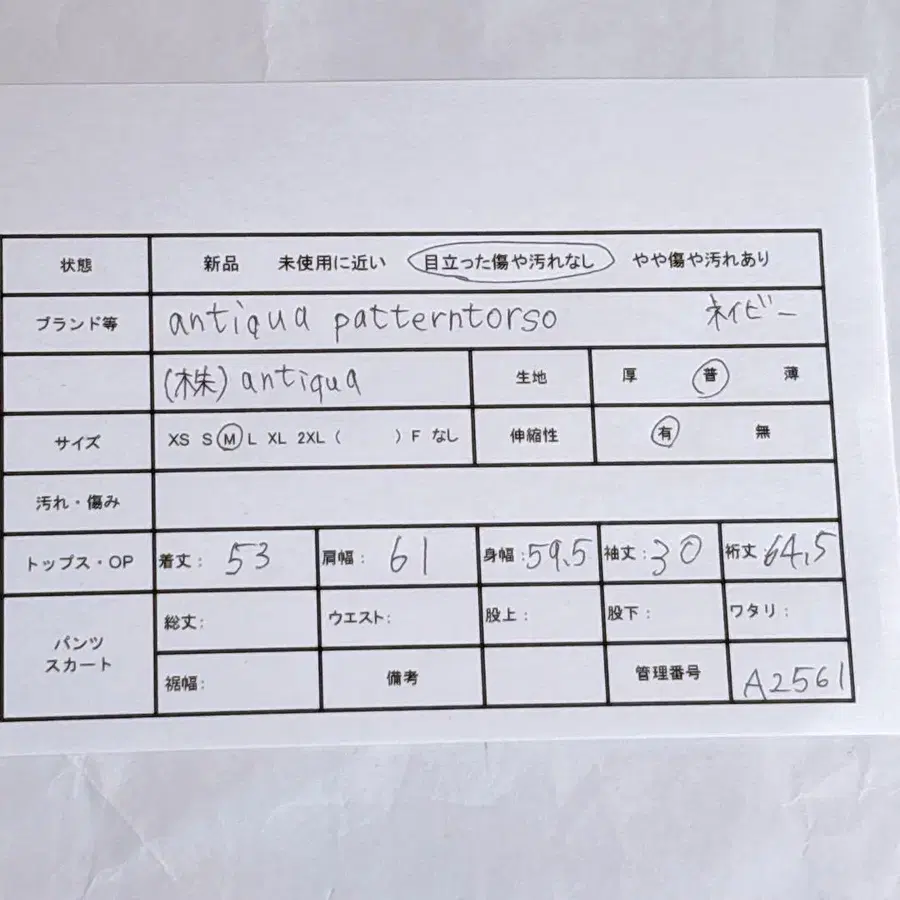 状態 新品 未使用に近い 目立った傷や汚れなし やや傷や汚れあり
ブランド等 antiqua patterntorso ネイビー
(株) antiqua 生地 厚 普 薄
サイズ XS S M L XL 2XL ( ) F なし 伸縮性 有 無
汚れ・傷み
トップス・OP 着丈: 53 肩幅: 61 身幅: 59.5 袖丈: 30 裄丈: 64.5
パンツ スカート 総丈: ウエスト: 股上: 股下: ワタリ:
裾幅: 備考 管理番号 A2561